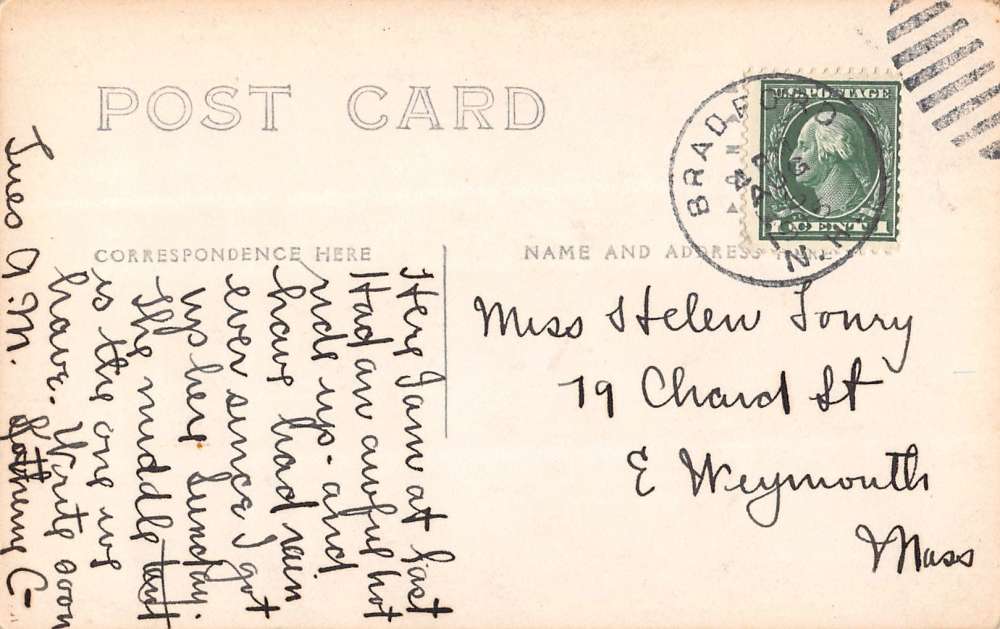 POST CARD
CORRESPONDENCE HERE
NAME AND ADDRESS HERE
U.S. POSTAGE
1 CENT 1
BRADFORD
N.H.
AUG
Tues A.M.
Here I am at last
Had an awful hot
ride up. and
have had rain
ever since I got
up here Sunday.
The middle
is the one we
have. Write soon
C-
Miss Helen Tonry
79 Chard St
E Weymouth
Mass